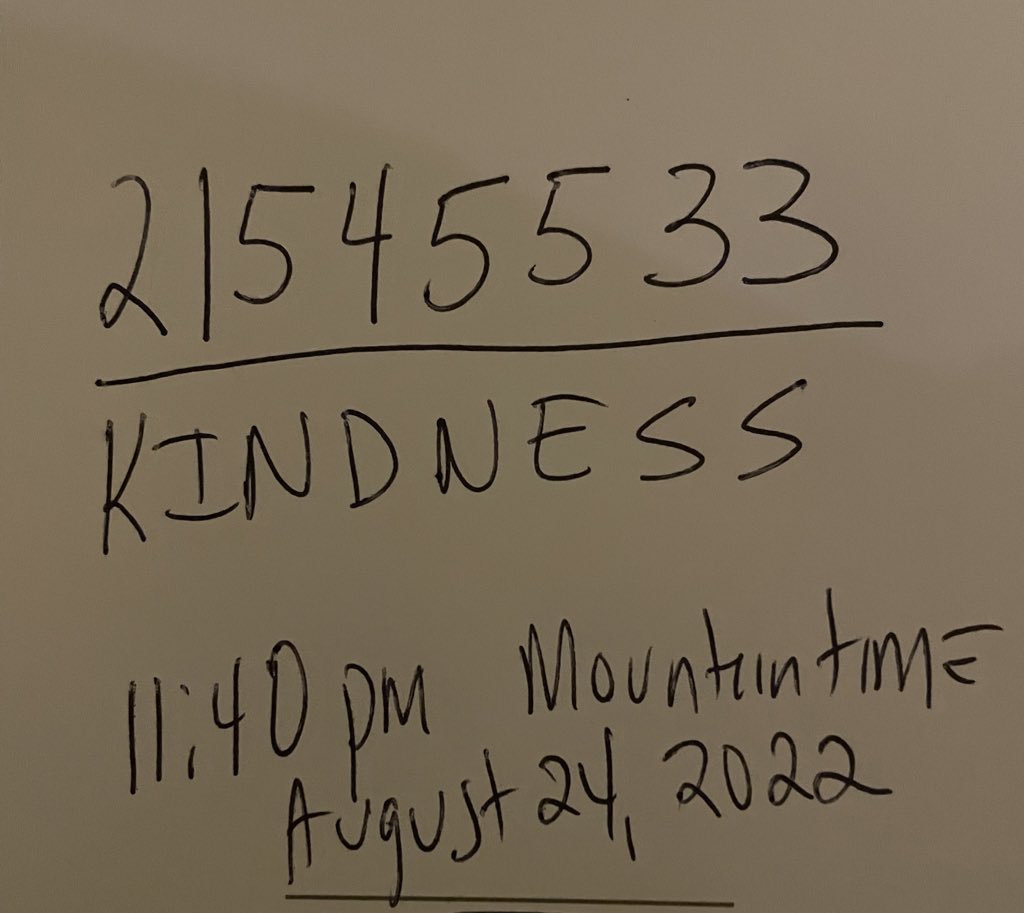 21545533
KINDNESS
11:40 pm Mountain time
August 24, 2022